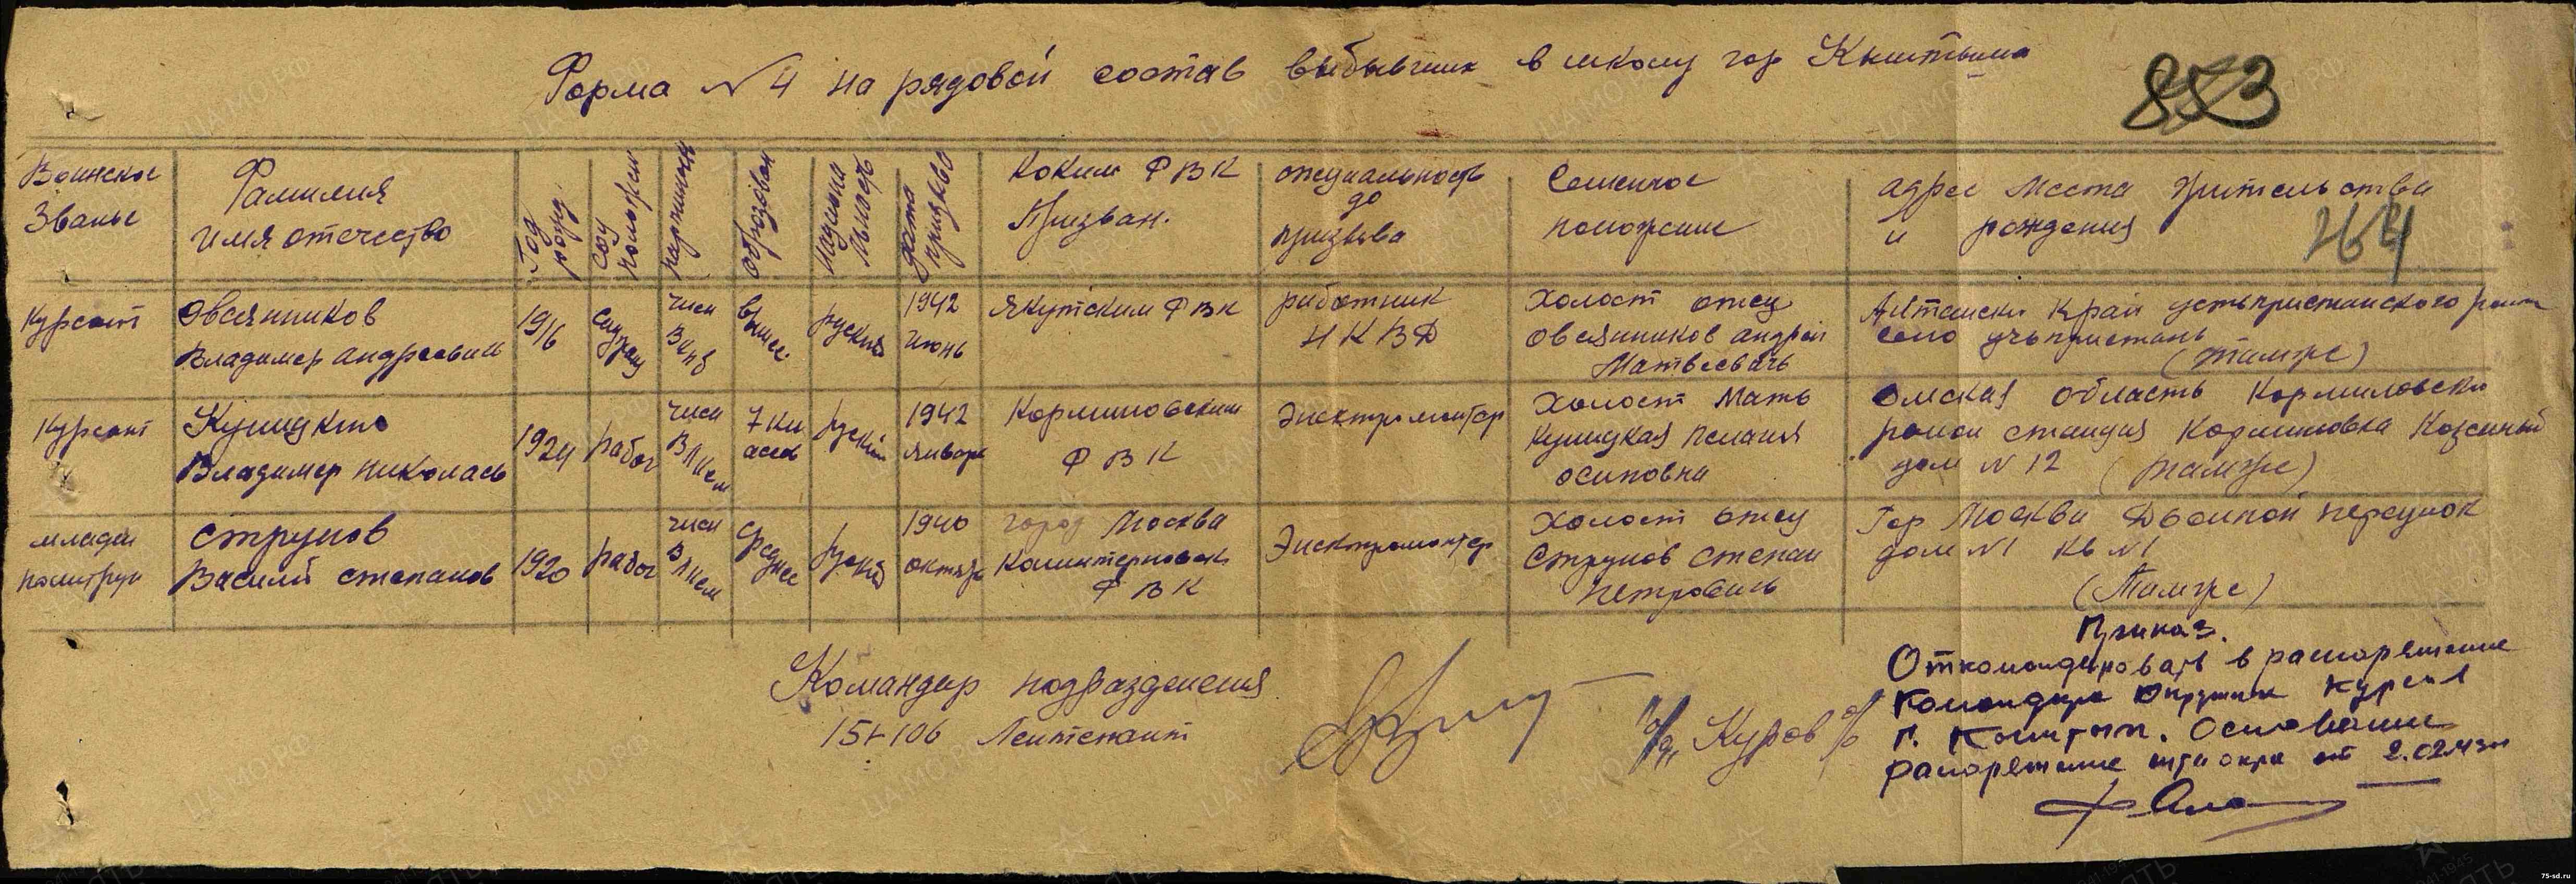 Форма N 4 на рядовой состав выбывших в школу гор Кыштыма
853
Воинское
Званье
Фамилия
имя отечество
Год
рожд
соц
положен
партийность
образован
национа
льность
дата
призыва
Каким РВК
Призван.
специальность
до
призыва
Семейное
положение
адрес места жительства
и рождения
264
Курсант
Овсянников
Владимер андреевич
1916
служащ
член
ВКПб
высшее
руский
1942
июнь
Якутским РВК
работник
НКВД
Холост отец
Овсяников андрей
Матвеевачь
Алтайски Край устьпристанского район
село
(тамже)
Курсант
Владимер николаевь
1924
рабоч
член
ВЛКСМ
7 кл
асов
руский
1942
январь
Кормиловским
РВК
Электромонтер
Холост Мать
осиповна
Омская область Кормиловски
район станция Кормиловка Казенный
дом N 12 (тамже)
младши
политрук
Струнов
Василий степанов
1920
рабоч
член
ВЛКСМ
среднее
руский
1940
октябр
город Москва
Коминтерновск
РВК
Электромонтер
Холост отец
Струнов степан
петровичь
Гор Москва Двойной переулок
дом N1 кв N1
(Тамже)
Командир подразделения
15т106 Лейтенант
п/п Куров
Приказ.
Откомандировать в распоряжение
командира окружн курсов
г. Кыштым. Основание
распоряжение штаокра от 2.02.43г
ЦАМО РФ
75-sd.ru